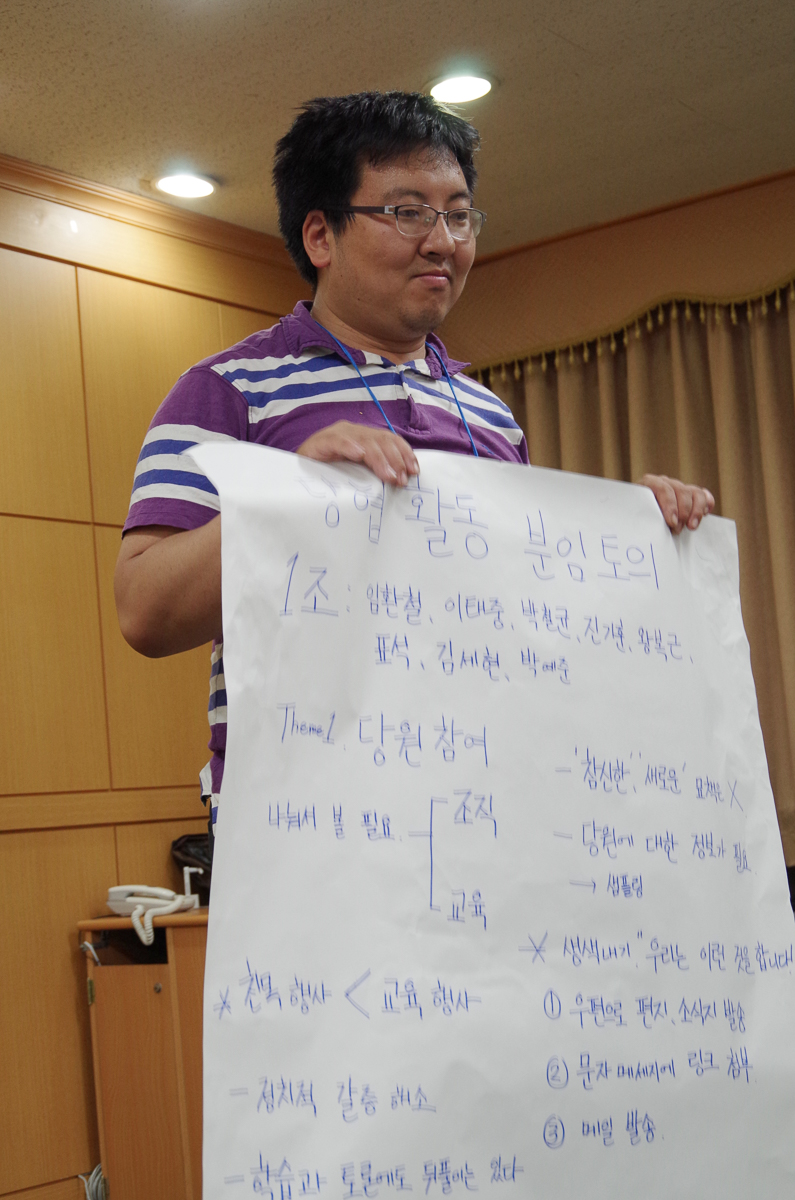 당협 활동 분임토의
1조 : 임환철, 이태중, 박철균, 진기훈, 왕복근,
표석, 김세현, 박예준
Theme1. 당원 참여
나눠서 볼 필요.
조직
교육
* 친목 행사 < 교육 행사
- 정치적 갈증 해소
- 학습과 토론에도 뒤풀이는 있다
- '참신한', '새로운' 묘책은 X
- 당원에 대한 정보가 필요
→ 샘플링
* 생색내기. "우리는 이런 것을 합니다!
① 우편으로 편지, 소식지 발송
② 문자 메세지에 링크 첨부
③ 메일 발송.